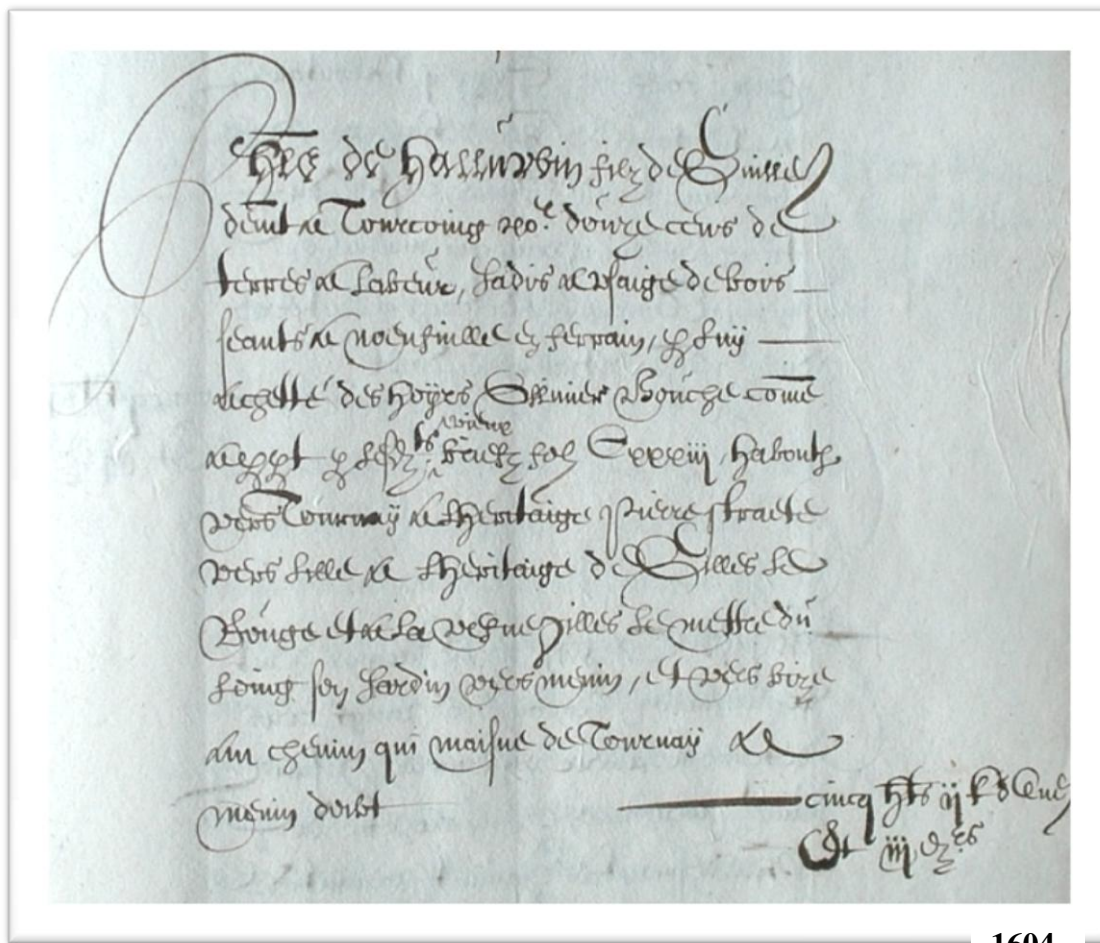 Chles de Halluwin filz de Guille
demt a Tourcoing po.r douze cens de
terres a labeur, Jadis a usaige de bois
seants a noeufville en ferrain, p luy
achetté des hoyrs Ollivier Bouche come
appt p les vieux briefz fol Cxxxiij, habouts
vers Tournay a lheritaige Pierre straete
vers Lille a lheritaige de Gilles le
Rouge et a la vefue Gilles le mettre du
loing sen Jardin vers menin, et vers bize
au chemin qui maisne de Tournay a
menin doibt cincq hts ij
et iij
1604